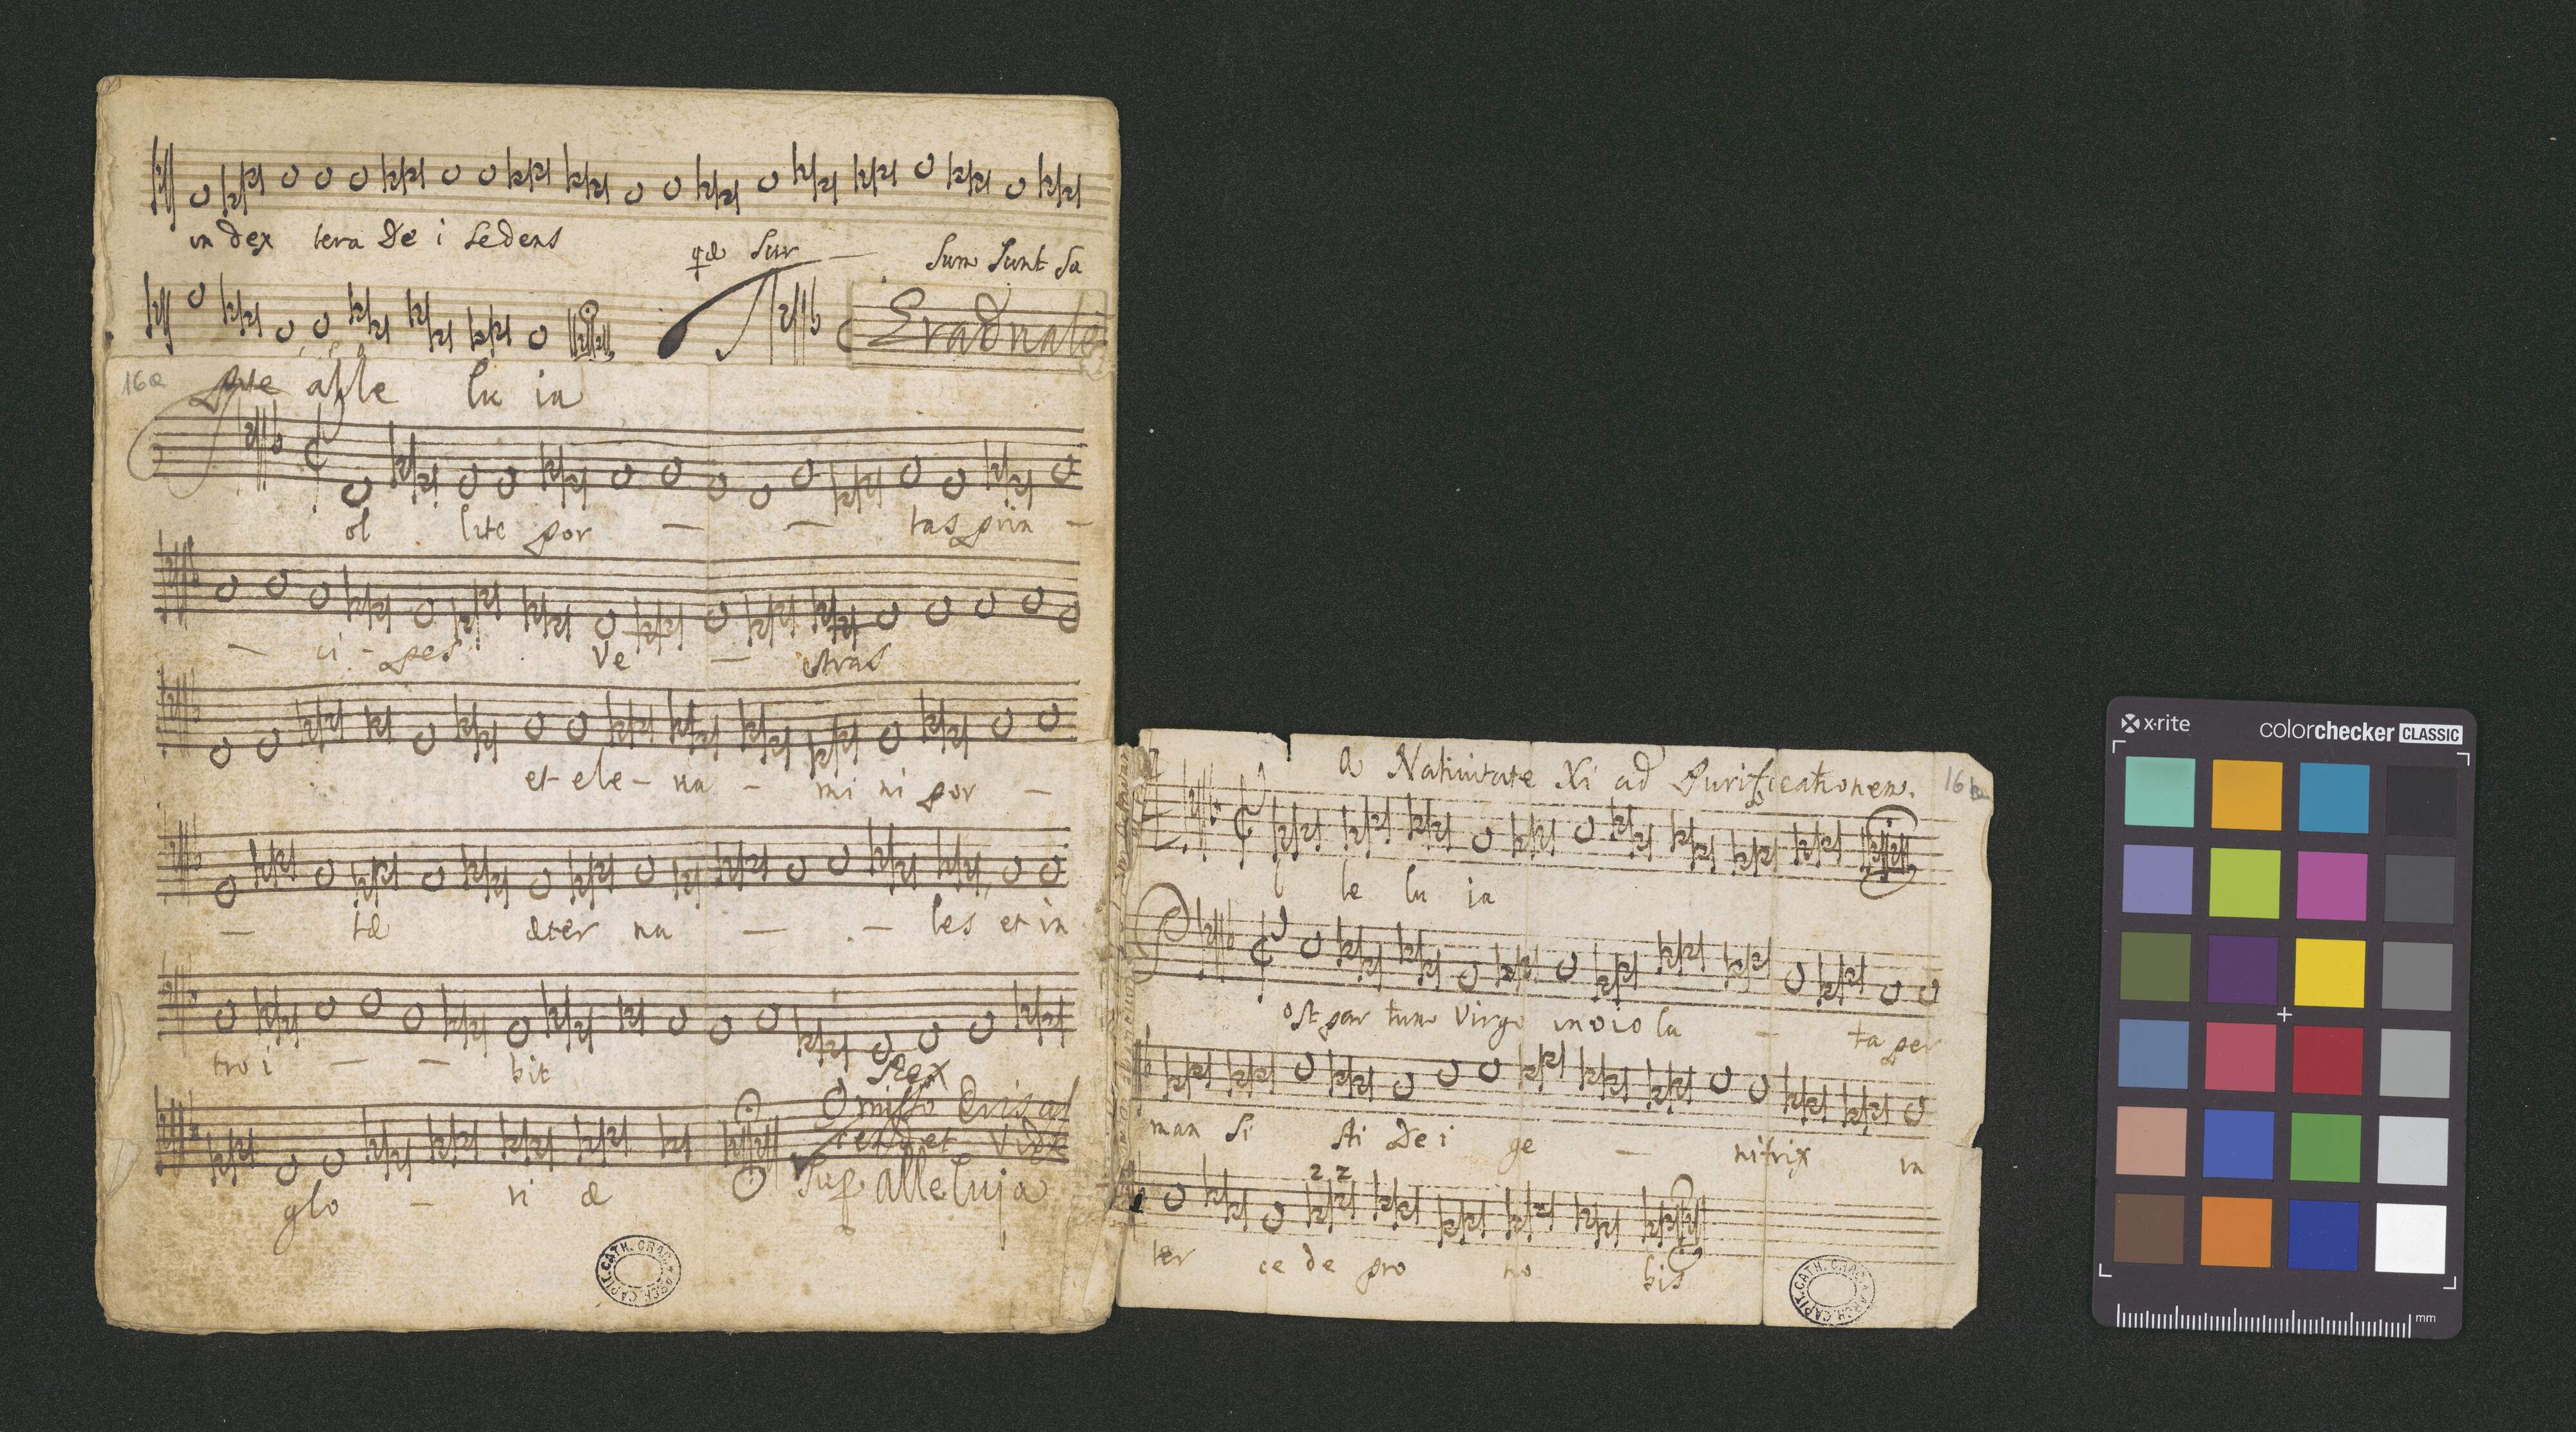 in dex tera De i Sedens
quæ Sur — Sum Sunt Sa
Graduale
16a
pite alle lu ia
ol lite por — — tas prin —
— ci - pes Ve — stras
et ele - na - mi ni por —
— tæ æter na — . — les et in
tro i — — bit
Rex
Omisso
glo — ri æ
Sup alleluja
ARCH. CAPIT. CATH. CRAC.
A Nativitate Xi ad Purificationem.
16b
l le lu ia
ost par tum Virgo invio la — ta per
man Si sti De i ge — nitrix in
2 2
ter ce de pro no bis
ARCH. CAPIT. CATH. CRAC.
x·rite
colorchecker CLASSIC
mm